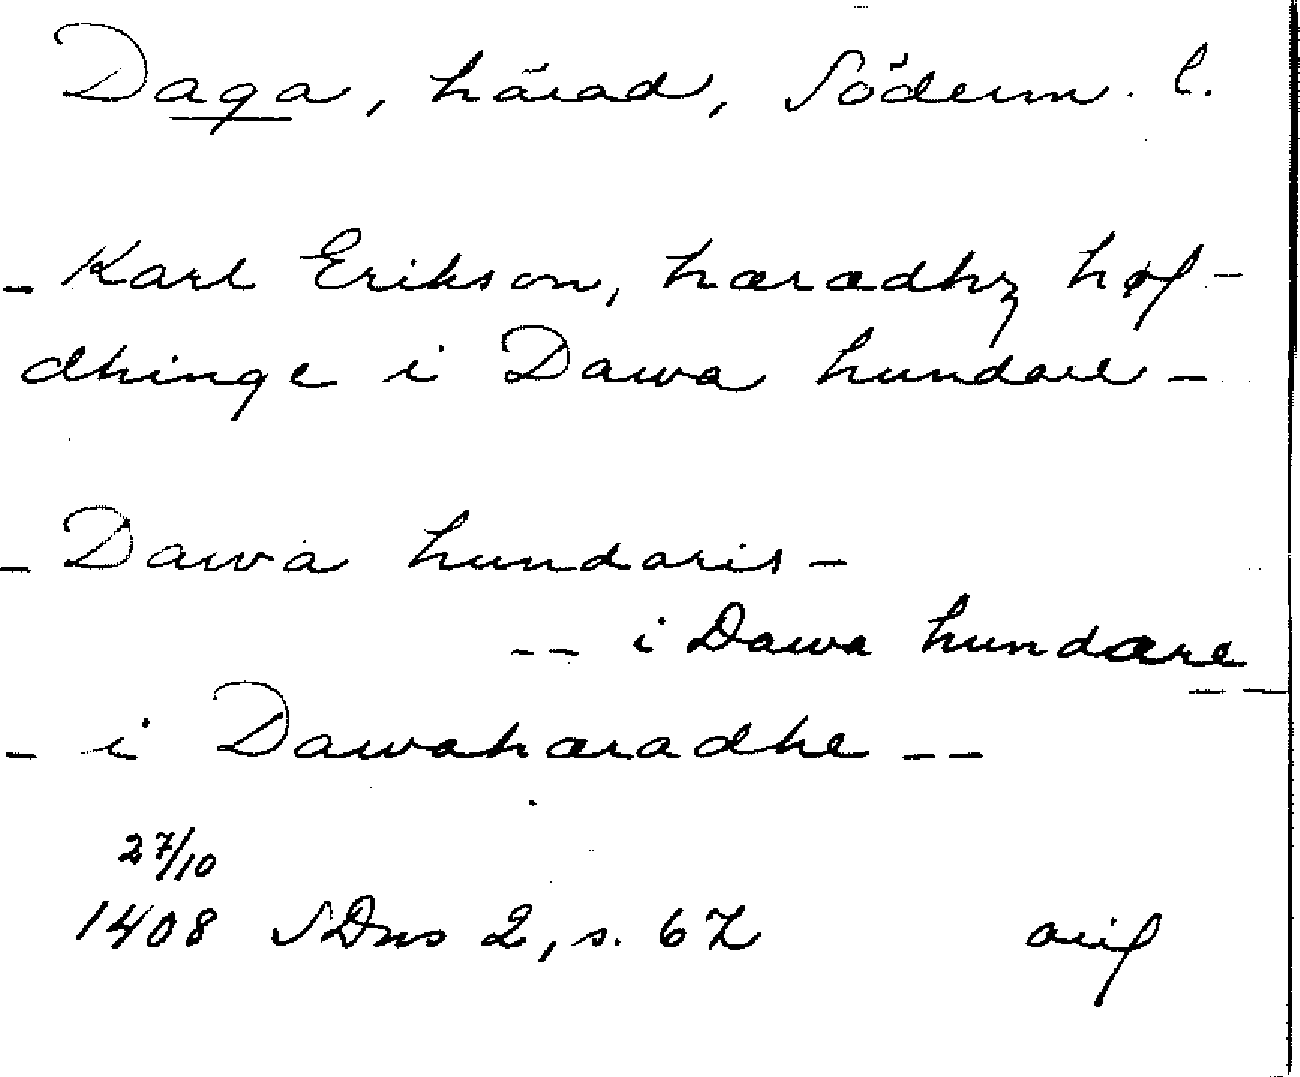 Daga, härad, Söderm. l.
- Karl Erikson, hæradhz høf-
dhinge i Dawa hundare -
- Dawa hundaris -
-- i Dawa hundære --
- i Dawahæradhe --
27/10
1408 SDns 2, s. 67 orig